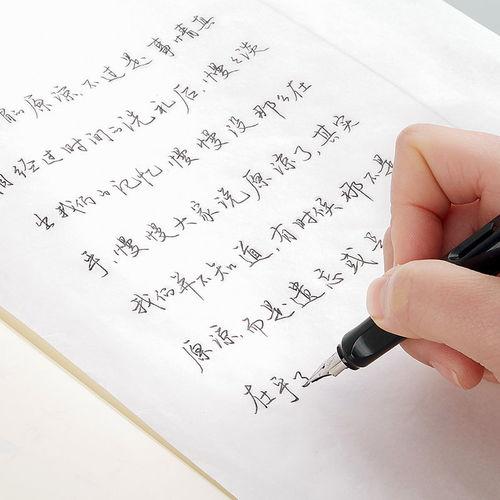 原凉,不过是事情真
相经过时间的洗礼后,慢慢淡
出我们的记忆,慢慢没那么在
乎,慢慢大家说原凉了,其实
我们并不知道,有时候那不是
原凉,而是遗忘或
在乎了